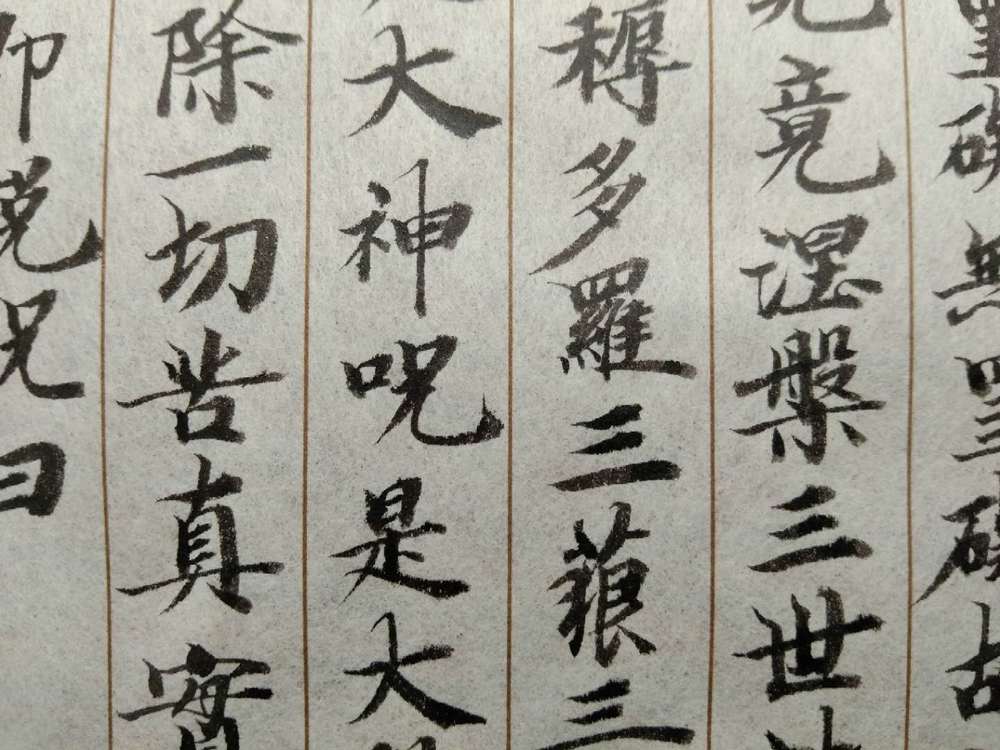 罣礙無罣礙故
究竟涅槃三世
耨多羅三藐三
大神呪是大
除一切苦真實
即説呪曰